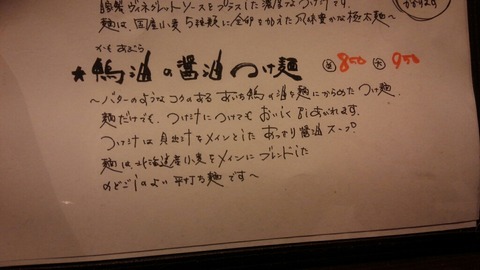 自家製ヴィネグレットソースをプラスした濃厚なつけ汁です。
麺は、国産小麦5種類に全卵を加えた風味豊かな極太麺〜
かも あぶら
★鴨油の醤油つけ麺 並850 大950
〜バターのようなコクのある あいち鴨の油を麺にからめた つけ麺。
麺だけでも、つけ汁につけても おいしく召しあがれます。
つけ汁は貝出汁をメインとした あっさり醤油スープ。
麺は北海道産小麦をメインにブレンドした
のどごしのよい 平打ち麺です〜